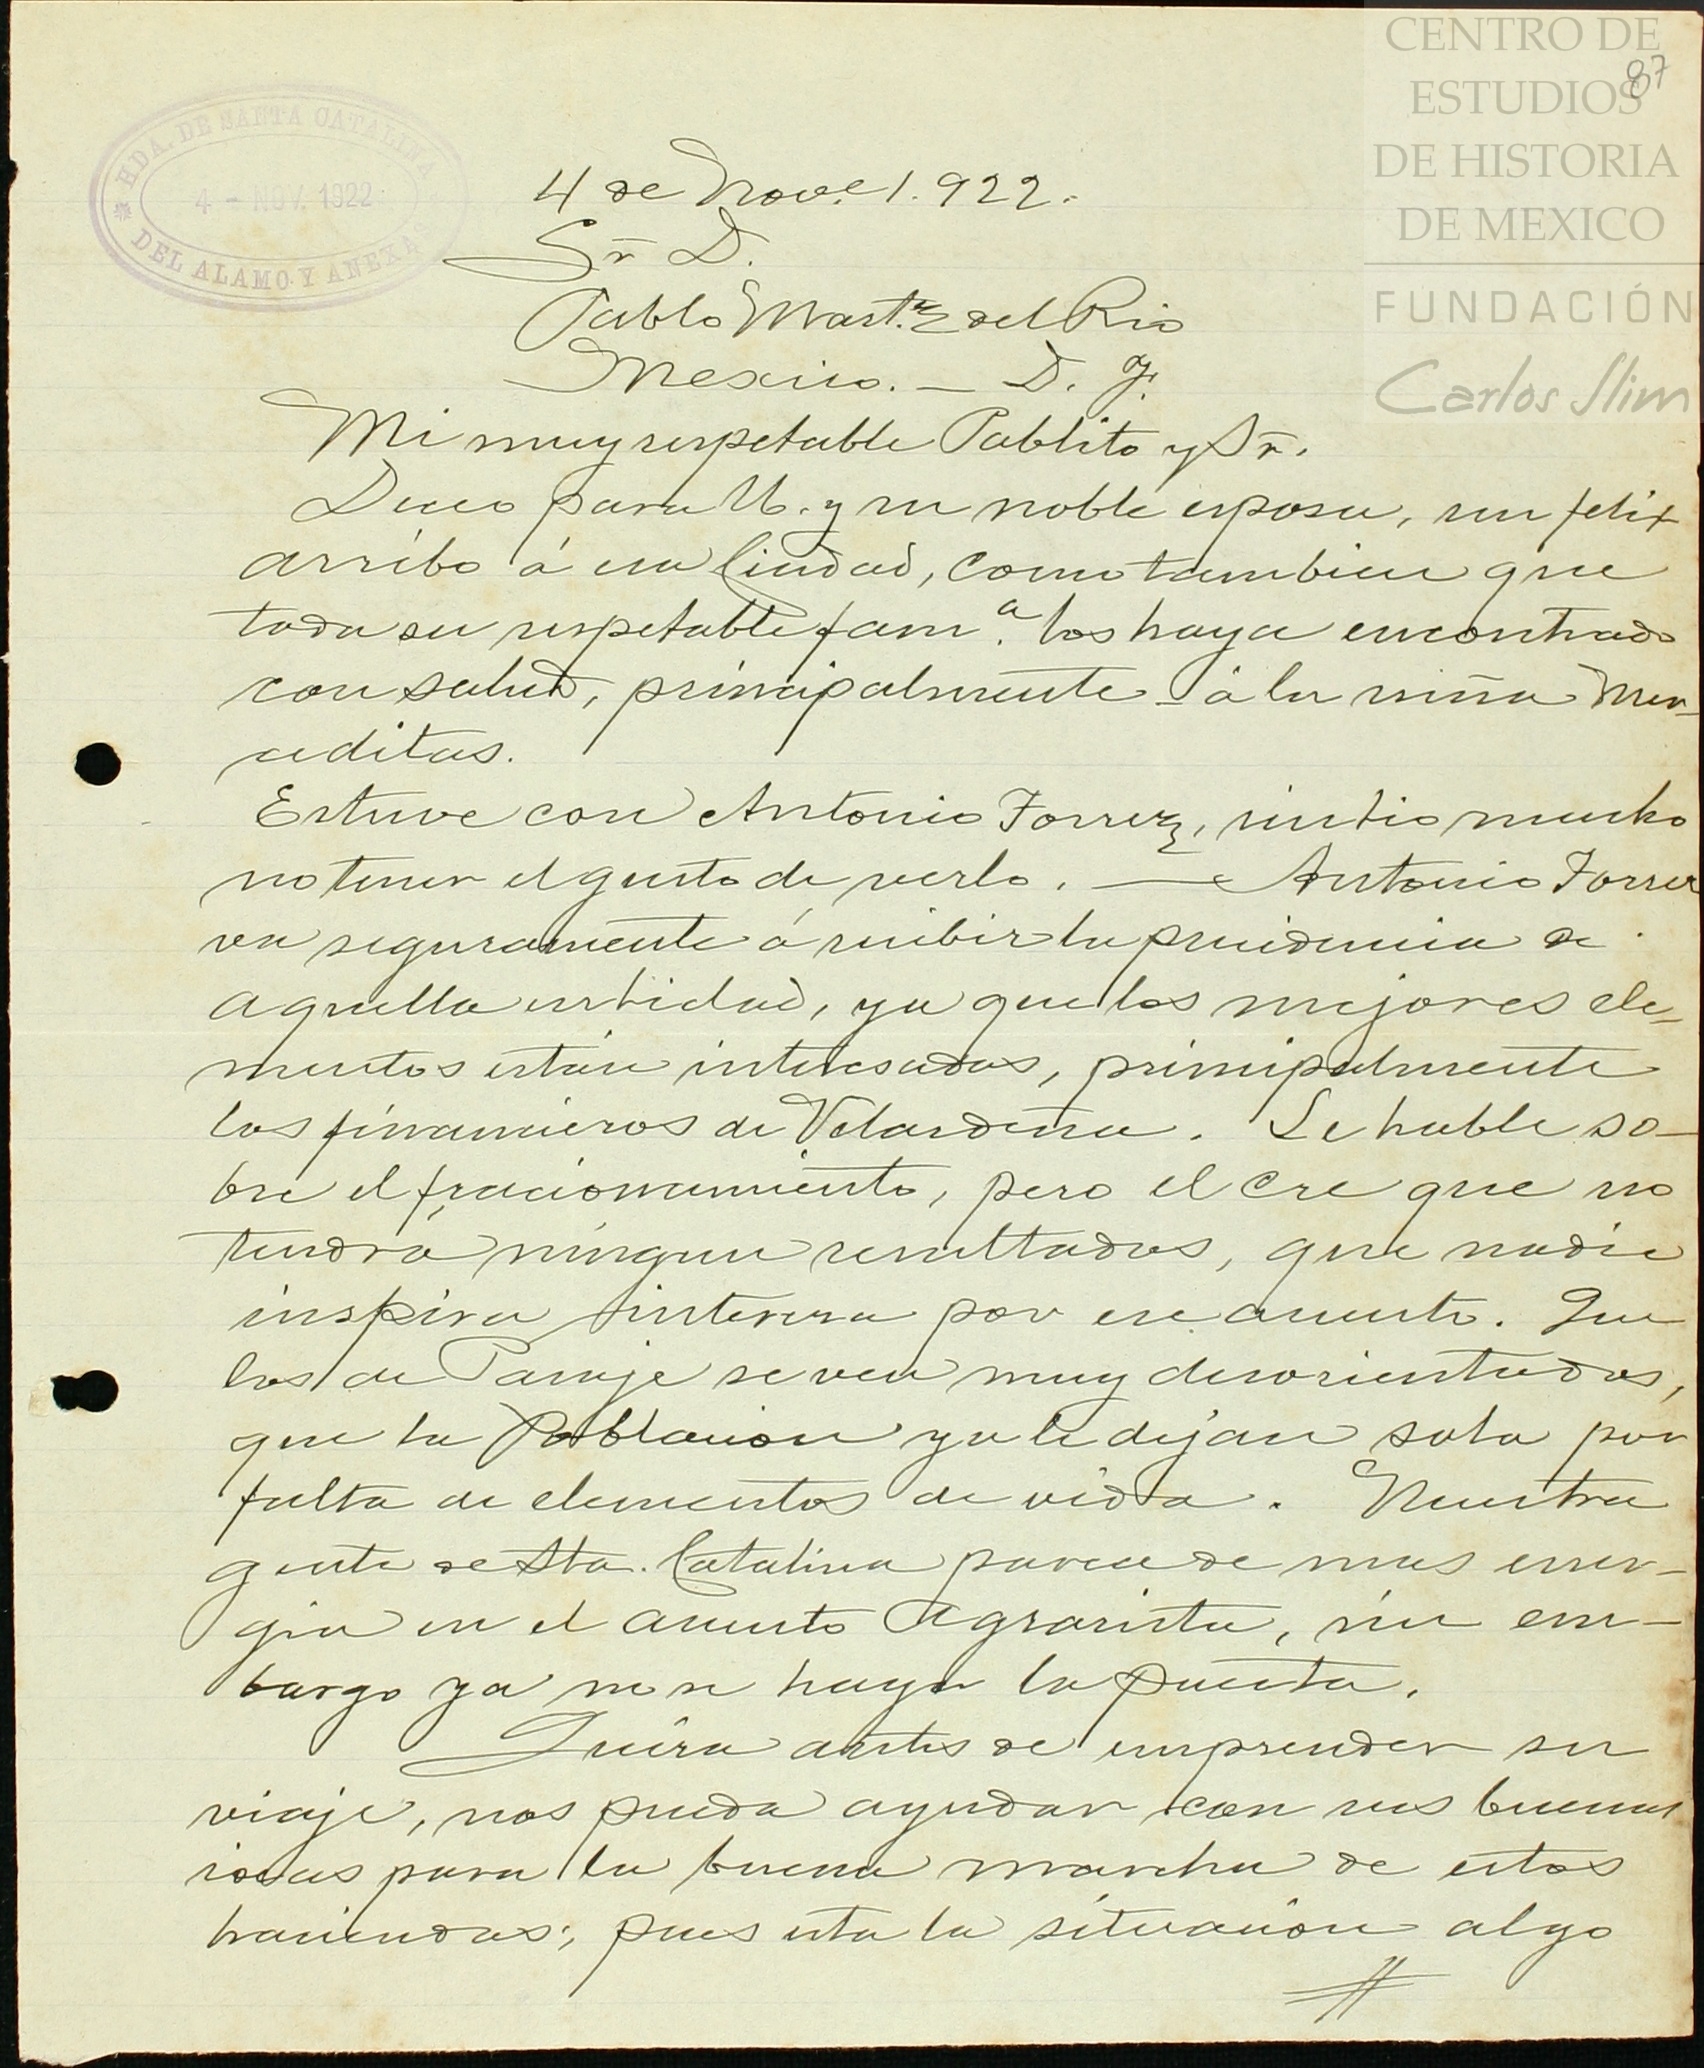 CENTRO DE
ESTUDIOS
DE HISTORIA
DE MEXICO
FUNDACIÓN
Carlos Slim
87
HDA. DE SANTA CATALINA
4 - NOV. 1922
DEL ALAMO Y ANEXAS
4 de Nove. 1.922.
Sr D.
Pablo Mart.z del Rio
Mexico. — D. F.
Mi muy respetable Pablito y Sr.
Deceo para U. y su noble esposa, un felix
arribo á esa Ciudad, como tambien que
toda su respetable fam.a los haya encontrado
con salud, principalmente á la niña Mer-
ceditas.
Estuve con Antonio Torrez, sintio mucho
no tener el gusto de verlo. — Antonio Torrez
va seguramente á recibir la precidencia de
aquella entidad, ya que los mejores ele-
mentos están interesados, principalmente
los financieros de Velardeña. Le hable so-
bre el fracionamiento, pero el cre que no
tendrá ningun resultados, que nadie
inspira interesa por ese asunto. Que
los de Pasaje se ven muy desorientados,
que la Poblacion ya le dejan sola por
falta de elementos de vida. Nuestra
gente de Sta. Catalina parece de mas ener-
gia en el asunto Agrarista, sin em-
bargo ya no se haya la puerta.
Quira antes de emprender su
viaje, nos pueda ayudar con sus buenas
ideas para la buena marcha de estas
haciendas; pues esta la situacion algo